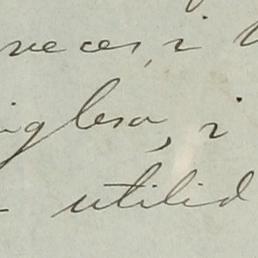 veces, i
iglesa, i
utilid